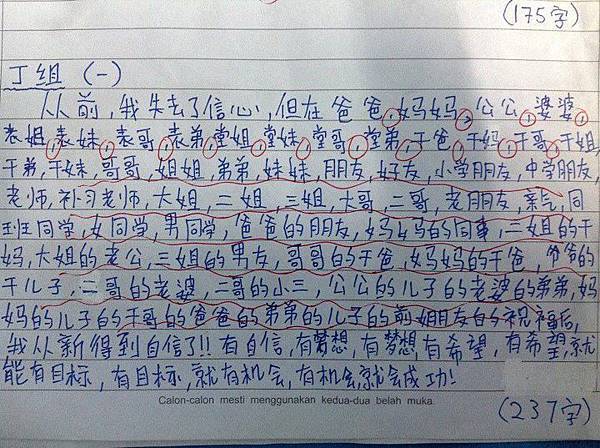 (175字)
丁组 (一)
从前,我失去了信心,但在爸爸,妈妈,公公,婆婆,
表姐,表妹,表哥,表弟,堂姐,堂妹,堂哥,堂弟,干爸,干妈,干哥,干姐,
干弟,干妹,哥哥,姐姐,弟弟,妹妹,朋友,好友,小学朋友,中学朋友,
老师,补习老师,大姐,二姐,三姐,大哥,二哥,老朋友,亲戚,同
班同学,女同学,男同学,爸爸的朋友,妈妈的同事,二姐的干
妈,大姐的老公,三姐的男友,哥哥的干爸,妈妈的干爸,爷爷的
干儿子,二哥的老婆,二哥的小三,公公的儿子的老婆的弟弟,妈
妈的儿子的干哥的爸爸的弟弟的儿子的前朋友的祝福后,
我从新得到自信了!! 有自信,有梦想,有梦想,有希望,有希望,就
能有目标,有目标,就有机会,有机会,就会成功!
Calon-calon mesti menggunakan kedua-dua belah muka.
(237字)